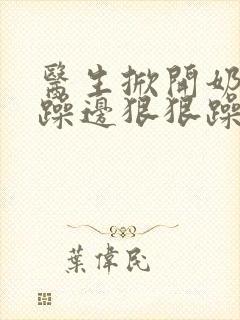 醫生掀開奶
躁邊狠狠躁
葉偉民